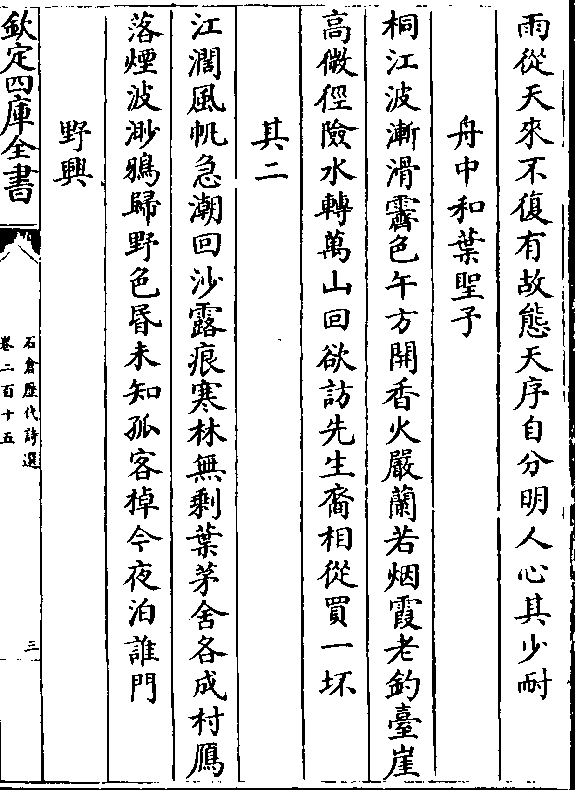 雨從天來不復有故態天序自分明人心其少耐
舟中和葉聖予
桐江波漸滑霽色午方開香火嚴蘭若烟霞老釣臺崖
高微徑險水轉萬山回欲訪先生裔相從買一坏
其二
江濶風帆急潮回沙露痕寒林無剩葉茅舍各成村鴈
落煙波渺鴉歸野色昬未知孤客棹今夜泊誰門
野興
欽定四庫全書
石倉歴代詩選
卷二百十五
三